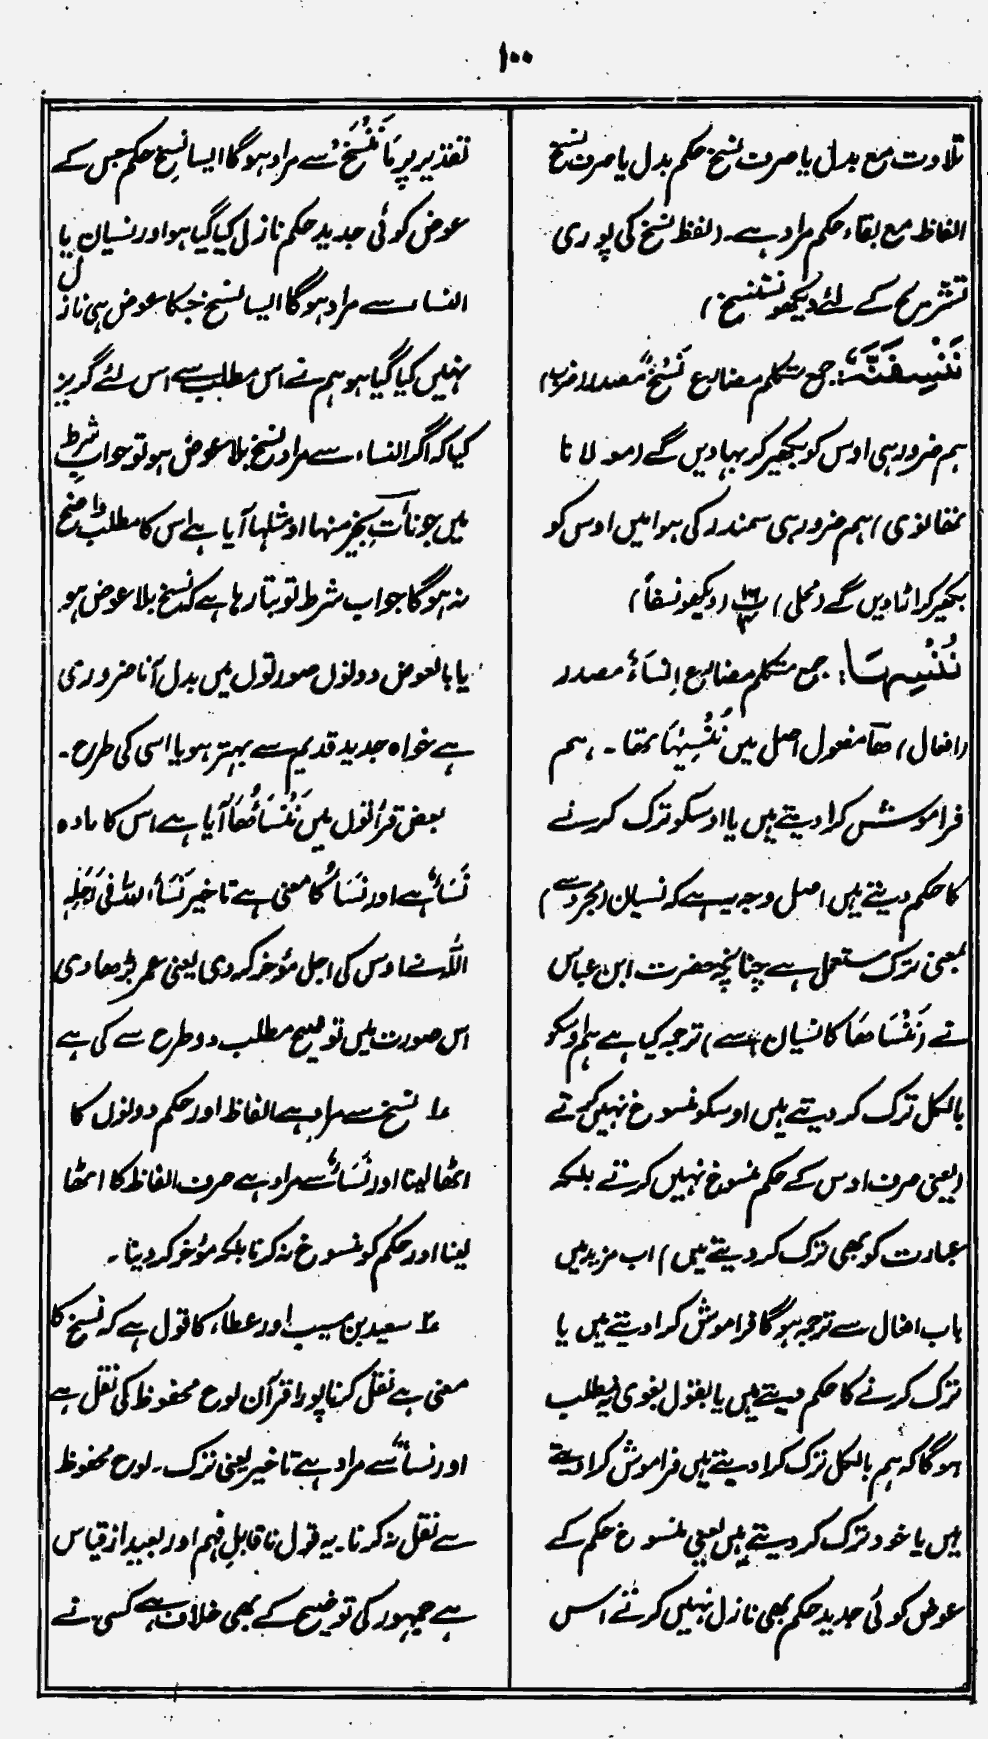 ۱۰۰
تلاوت مع بدل یا صرف نسخ حکم بدل یا صرف نسخ
الفاظ مع بقاء حکم مراد ہے۔ (لفظ نسخ کی پوری
تشریح کے لئے دیکھو ننسخ)
نَنْسِفَنَّهٗ: جمع متکلم مضارع نَسْفٌ مصدر (ضرب)
ہم ضرور ہی اوس کو بکھیر کر بہا دیں گے (مولانا
تھانوی) ہم ضرور ہی سمندر کی ہوا میں اوس کو
بکھیر کر اڑا دیں گے (محلی) (دیکھو نسفاً)
نُنْسِہَا: جمع متکلم مضارع اِنْسَاءٌ مصدر
(افعال) ھَا مفعول اصل میں نُنْسِیْہَا تھا۔ ہم
فراموش کرا دیتے ہیں یا اوسکو ترک کرنے
کا حکم دیتے ہیں اصل وجہ یہ ہے کہ نسیان (مجرد سے)
بمعنی ترک مستعمل ہے چنانچہ حضرت ابن عباس
نے (نَنْسَاھَا کا نسیان سے) ترجمہ کیا ہے ہم اوسکو
بالکل ترک کر دیتے ہیں اوسکو منسوخ نہیں کرتے
(یعنی صرف اوس کے حکم منسوخ نہیں کرتے بلکہ
عبارت کو بھی ترک کر دیتے ہیں) اب مزید میں
باب افعال سے ترجمہ ہوگا فراموش کرا دیتے ہیں یا
ترک کرنے کا حکم دیتے ہیں یا بقول بغوی یہ مطلب
ہوگا کہ ہم بالکل ترک کرا دیتے ہیں فراموش کرا دیتے
ہیں یا خود ترک کر دیتے ہیں یعنی منسوخ حکم کے
عوض کوئی جدید حکم بھی نازل نہیں کرتے اس
تقدیر پر مَا نَنْسَخْ سے مراد ہوگا ایسا نسخ حکم جس کے
عوض کوئی جدید حکم نازل کیا گیا ہو اور نسیان یا
انساء سے مراد ہوگا ایسا نسخ جسکا عوض ہی نازل
نہیں کیا گیا ہو ہم نے اس مطلب سے اس لئے گریز
کیا کہ اگر انساء سے مراد نسخ بلا عوض ہو تو جواب شرط
میں جو نَأتِ بخیر منہا او مثلہا آیا ہے اس کا مطلب واضح
نہ ہوگا جواب شرط تو بتا رہا ہے کہ نسخ بلا عوض ہو
یا بالعوض دونوں صورتوں میں بدل آنا ضروری
ہے خواہ جدید قدیم سے بہتر ہو یا اسی کی طرح۔
بعض قرأتوں میں نَنْسَأْھَا آیا ہے اس کا مادہ
نَسَاءٌ ہے اور نَسَاءٌ کا معنی ہے تاخیر نَسَأَ اللہُ فی اَجَلِہٖ
اللہ نے اوس کی اجل مؤخر کردی یعنی عمر بڑھادی
اس صورت میں توضیح مطلب دو طرح سے کی ہے
۱ نسخ سے مراد ہے الفاظ اور حکم دونوں کا
اٹھا لینا اور نَسَاءٌ سے مراد ہے صرف الفاظ کا اٹھا
لینا اور حکم کو منسوخ نہ کرنا بلکہ مؤخر کر دینا۔
۲ سعید بن مسیب اور عطاء کا قول ہے کہ نسخ کا
معنی ہے نقل کرنا پورا قرآن لوح محفوظ کی نقل ہے
اور نسأٌ سے مراد ہے تاخیر یعنی ترک۔ لوح محفوظ
سے نقل نہ کرنا۔ یہ قول ناقابلِ فہم اور بعید از قیاس
ہے جمہور کی توضیح کے بھی خلاف ہے کسی نے